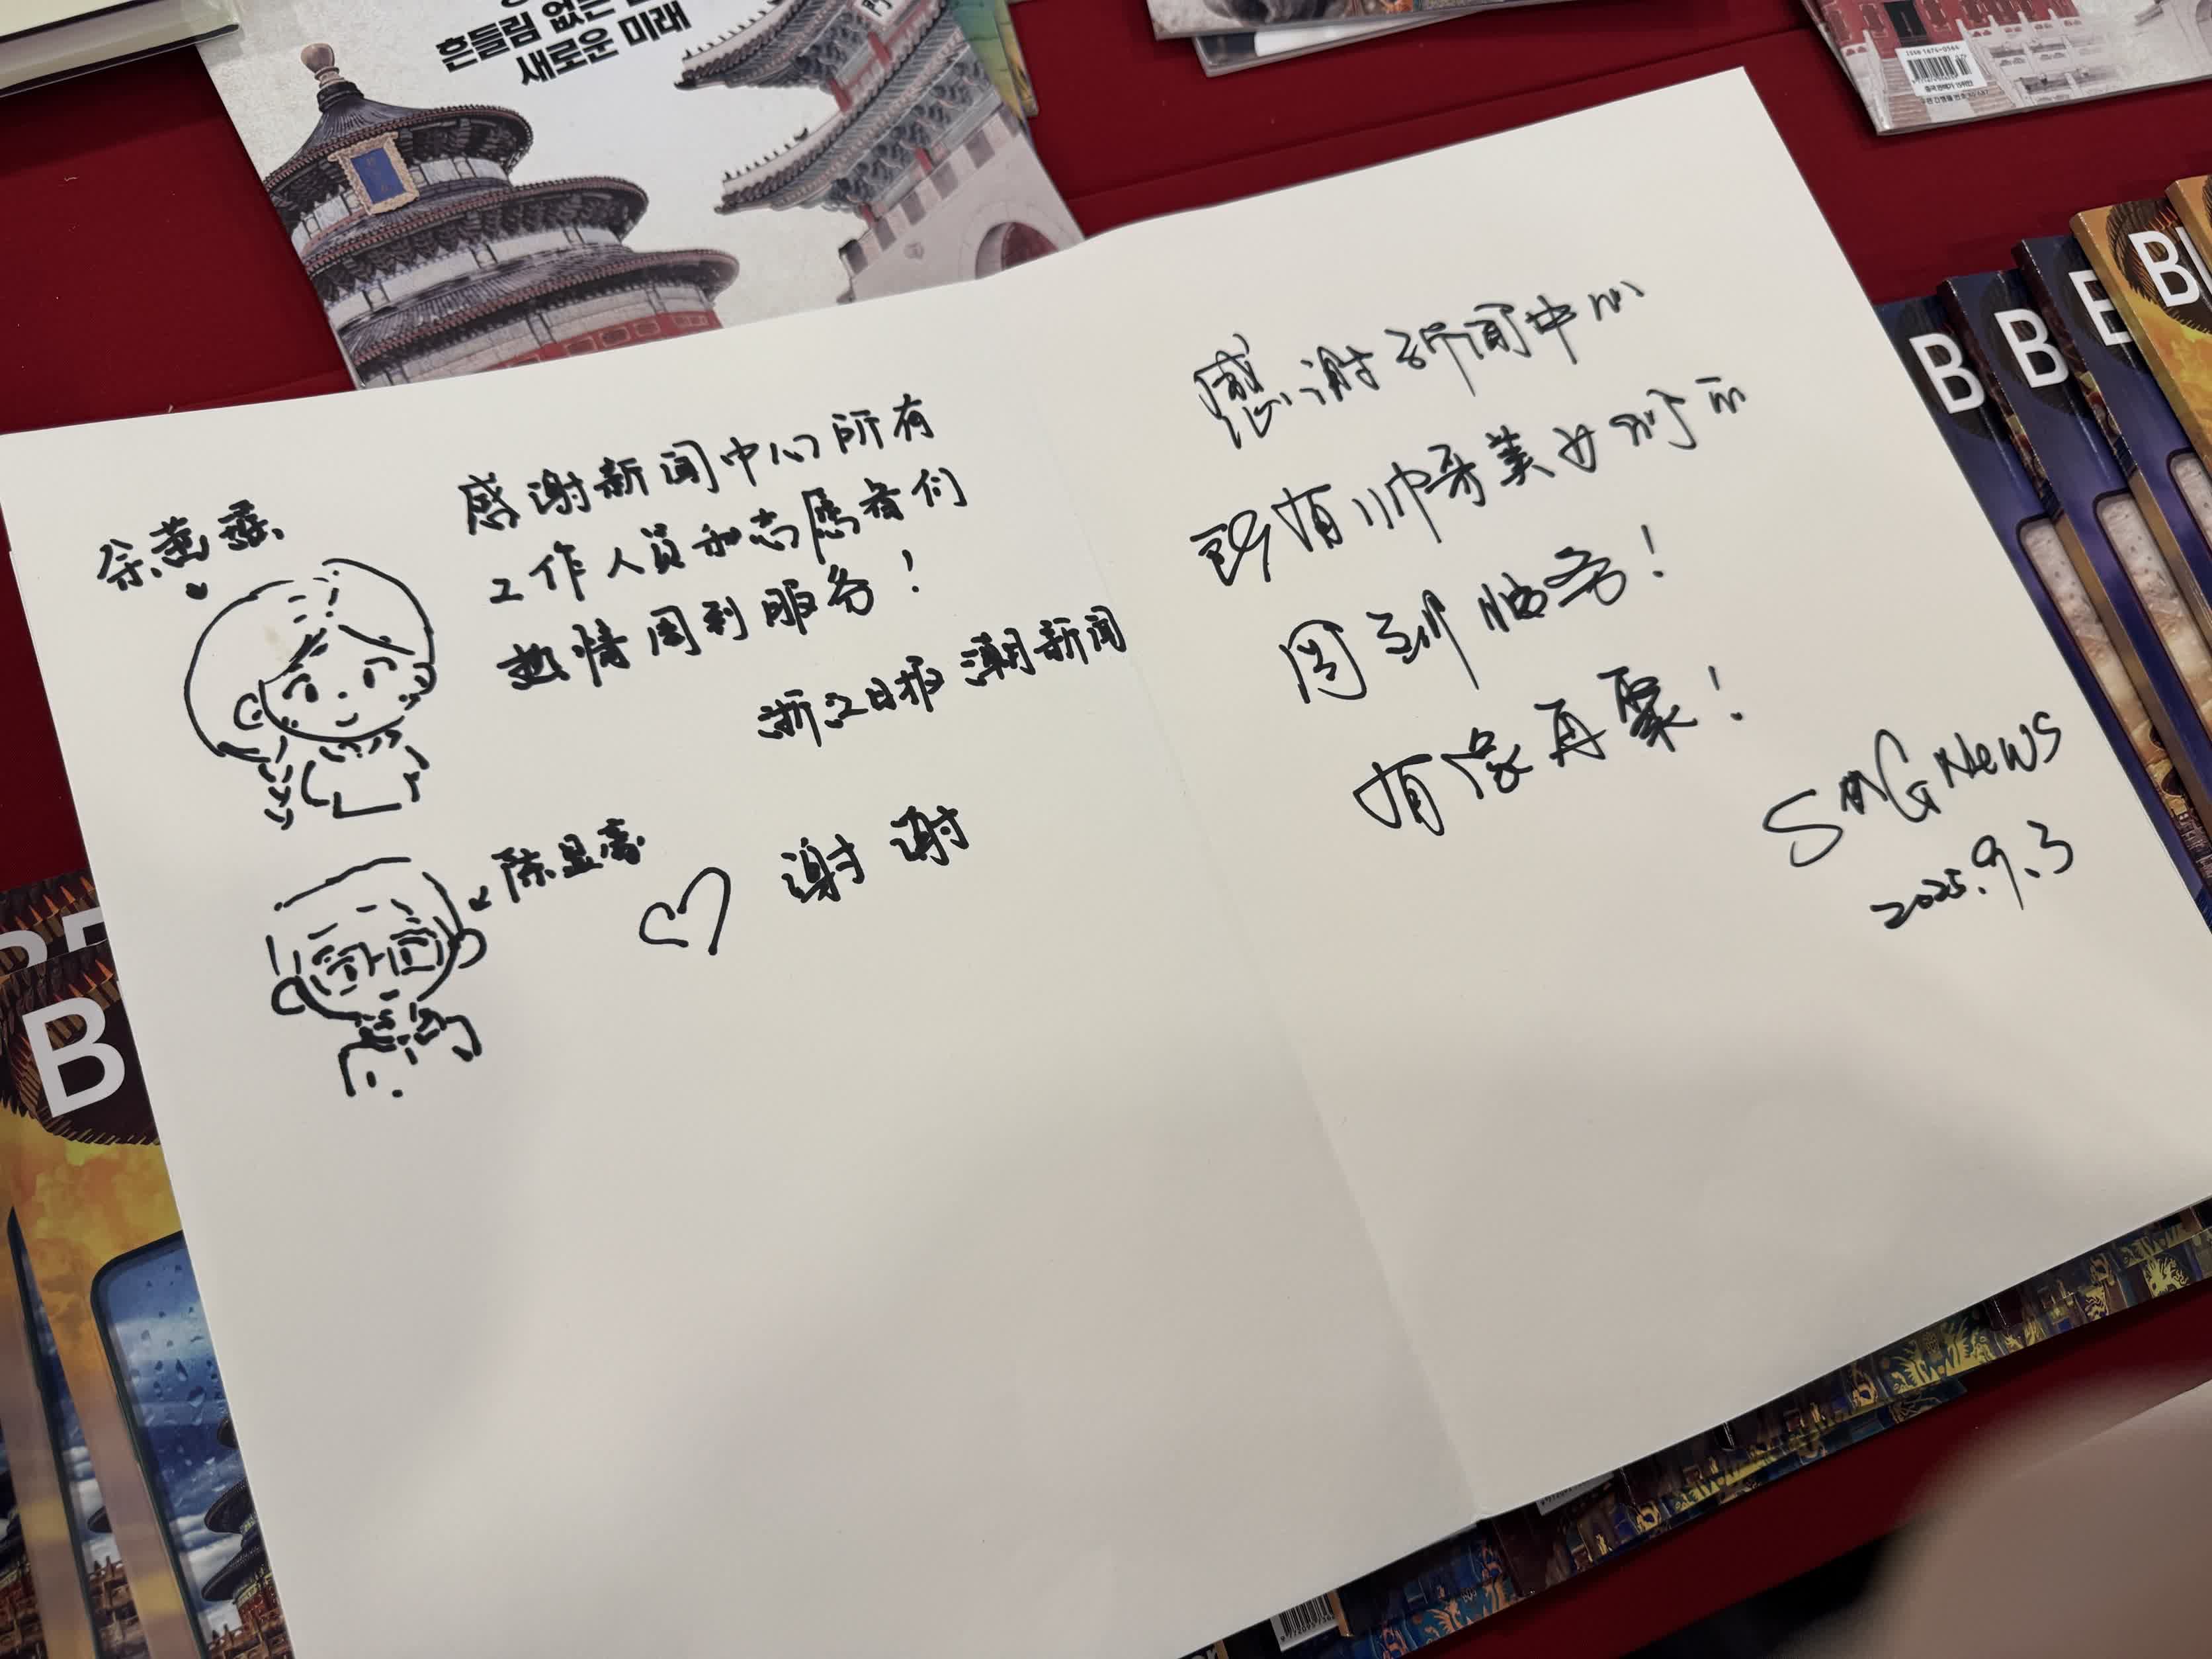 흔들림 없는
새로운 미래
感谢新闻中心所有
工作人员和志愿者们
热情周到服务！
浙江日报 潮新闻
余燕
陈显
谢谢
感谢新闻中心
所有帅哥美女
周到服务！
有缘再聚！
SMG News
2025.9.3
B
B
B
B